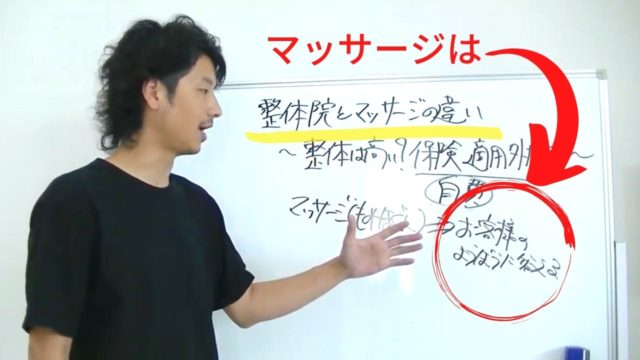 マッサージは
整体院とマッサージの違い
～整体は高い?保険適用外
自費
マッサージ(も
お客様の
ように